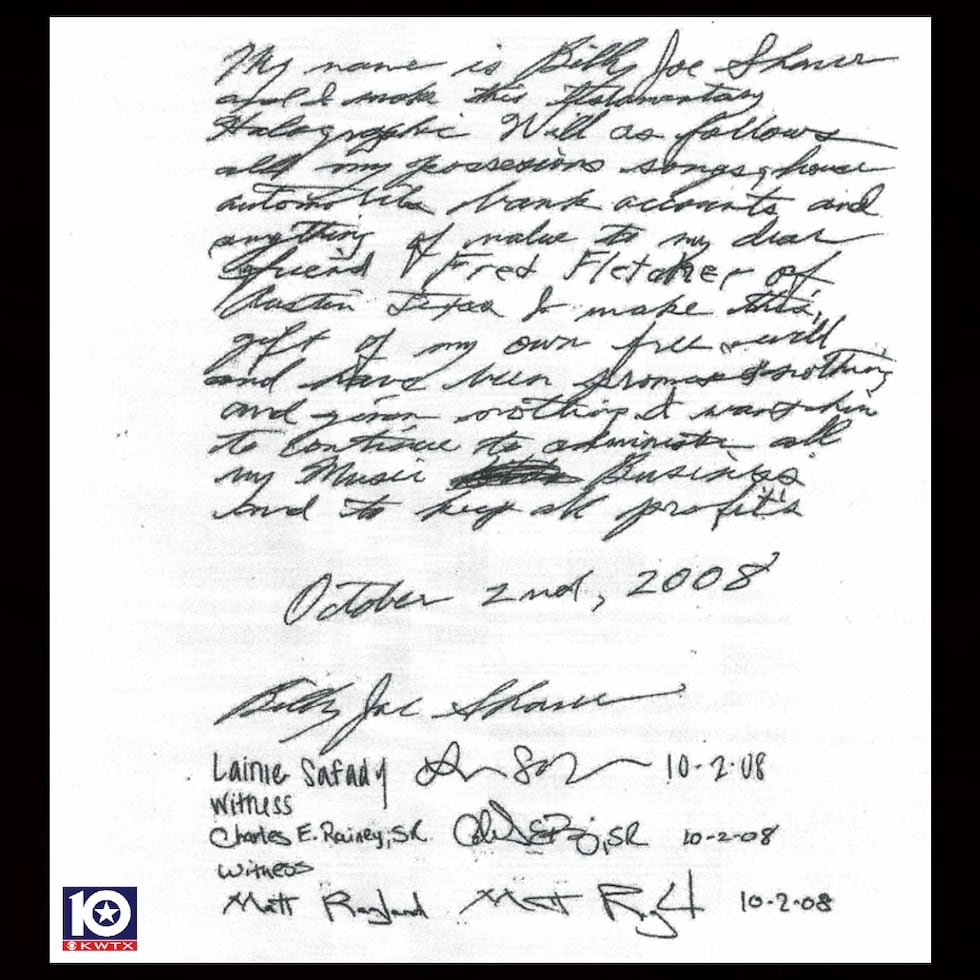 My name is Billy Joe Shaver
and I make this Testamentary
Holographic Will as follows
all my possesions songs, house
automobile bank accounts and
anything of value to my dear
friend Fred Fletcher of
Austin Texas I make this,
gift of my own free will
and have been promised nothing
and given nothing I want him
to continue to administer all
my Music Business
and to keep all profits
October 2nd, 2008
Billy Joe Shaver
Lainie Safady 10-2-08
Witness
Charles E. Rainey, SR. SR 10-2-08
Witness
Matt Ragland Matt 10-2-08
10
KWTX